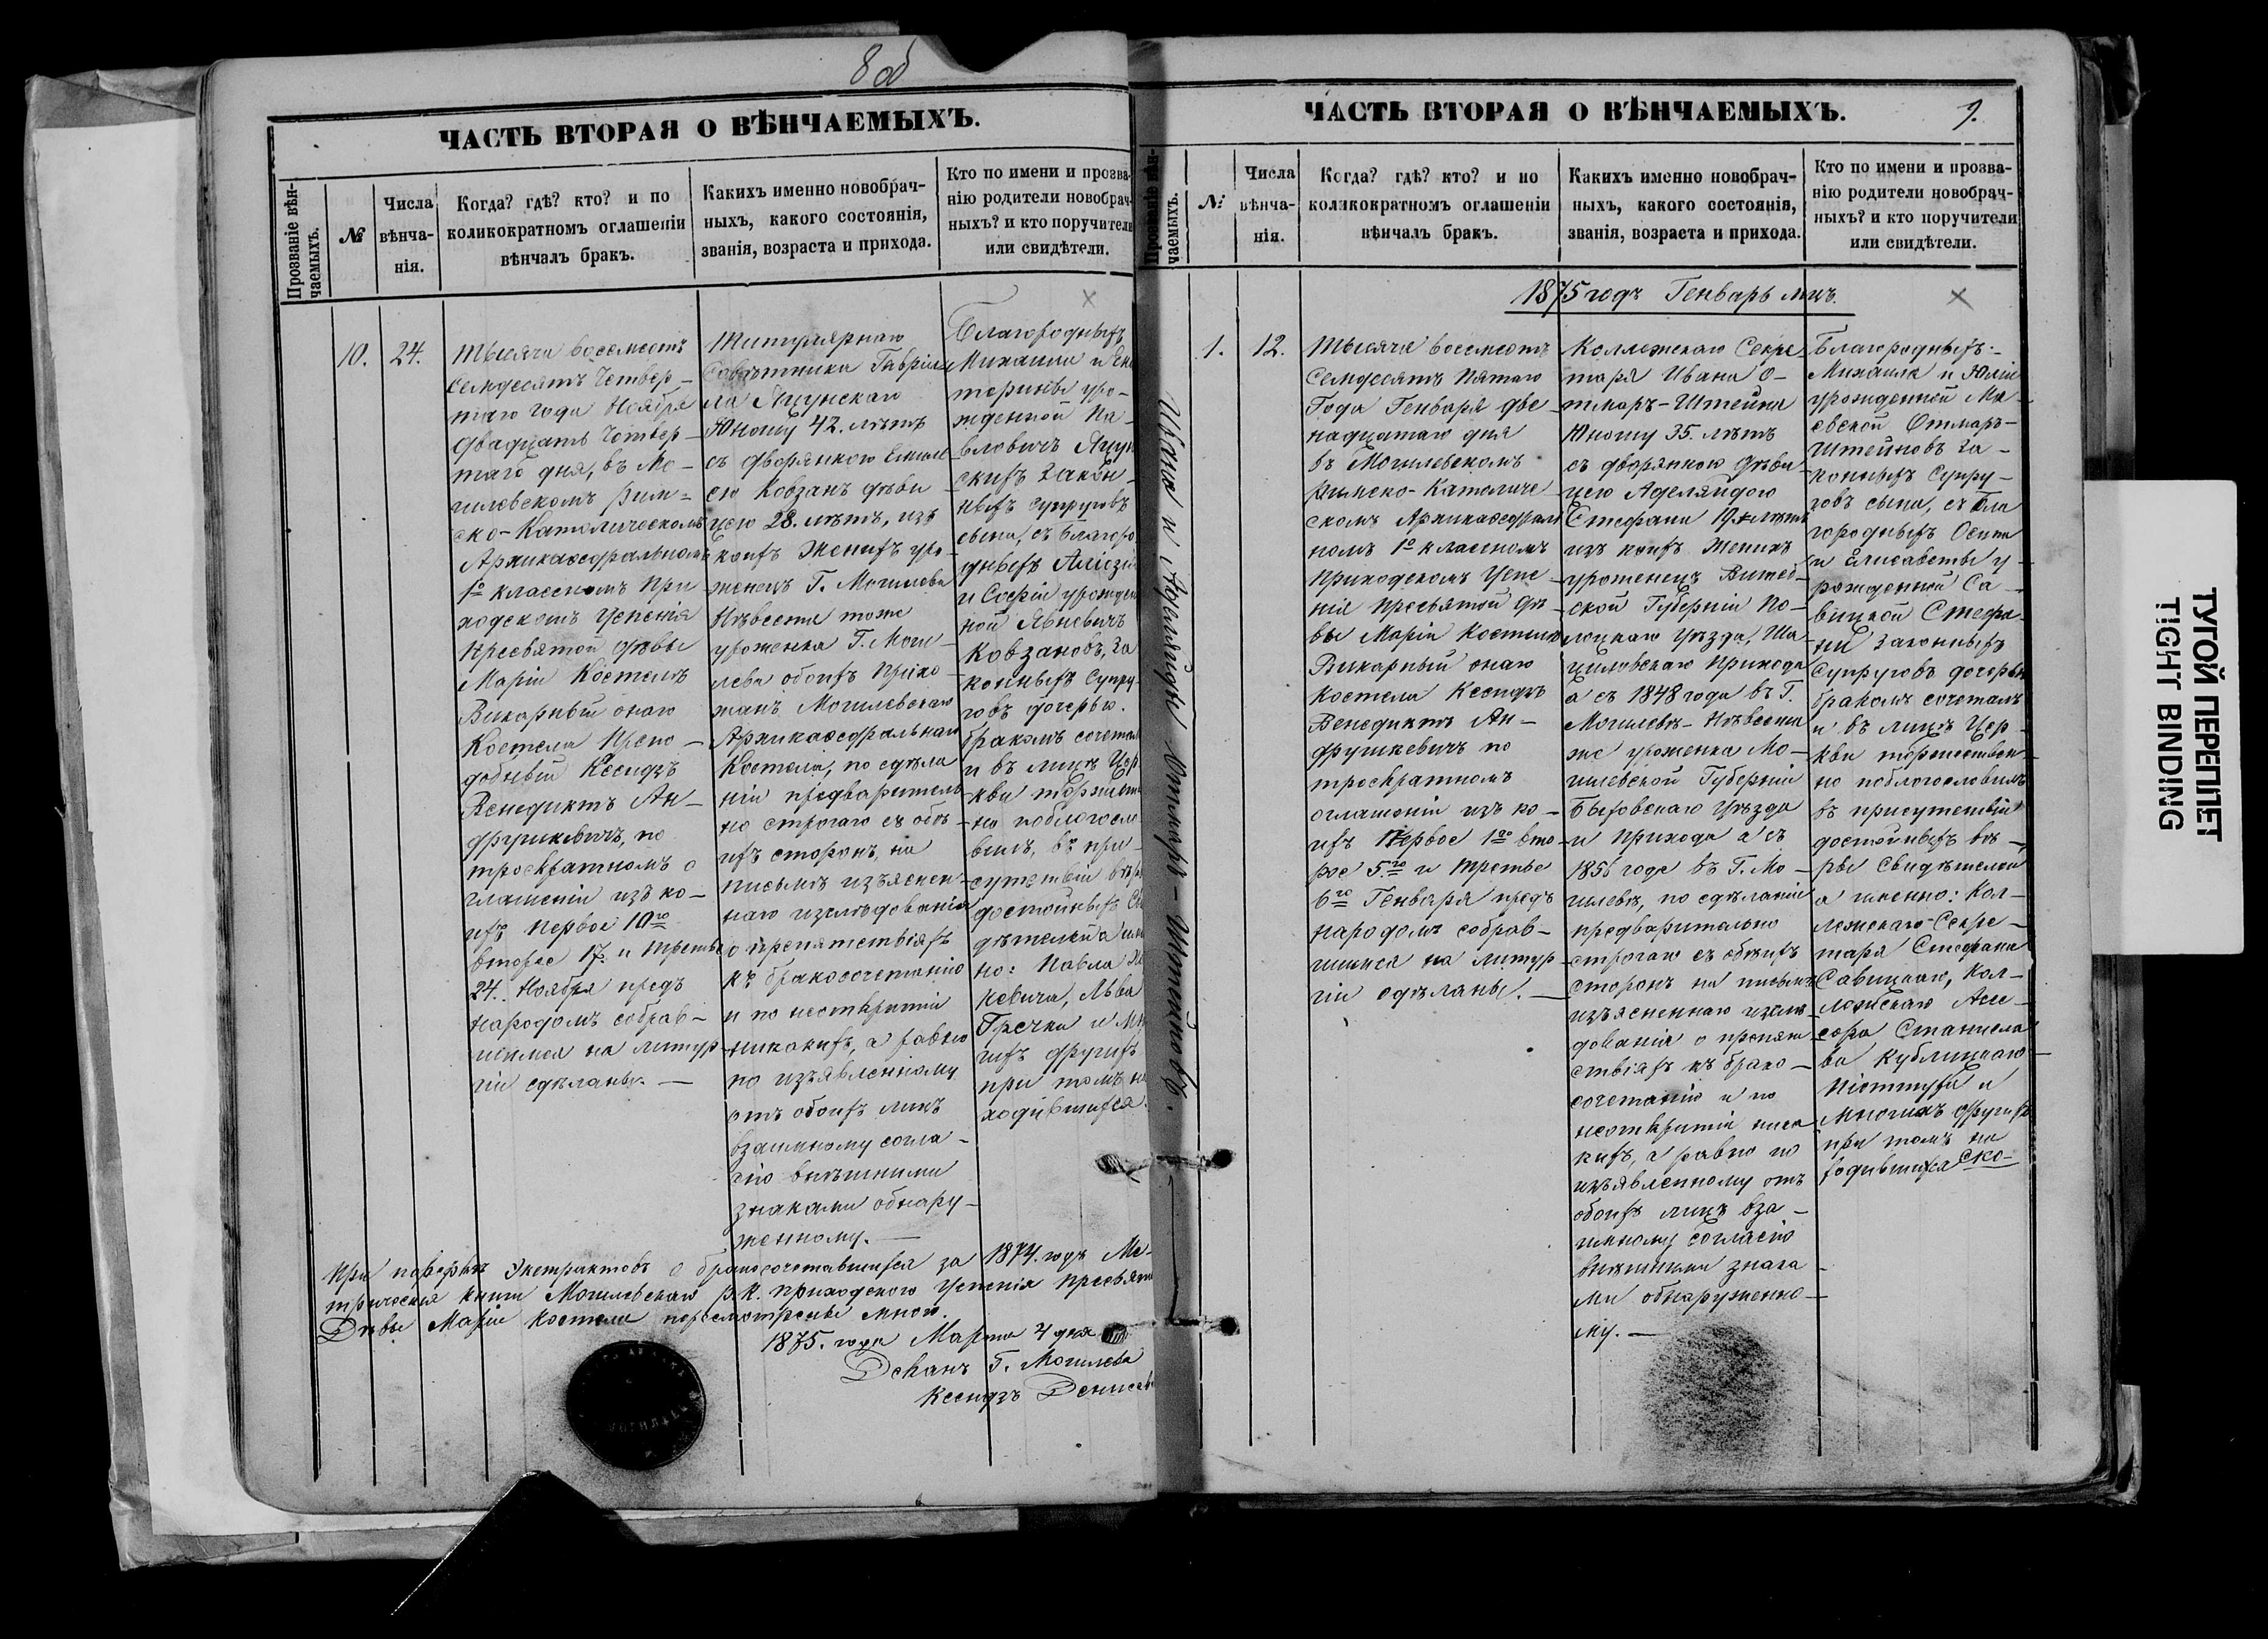 8 об
ЧАСТЬ ВТОРАЯ О ВѢНЧАЕМЫХЪ.
Прозваніе вѣн-
чаемыхъ.
№
Числа
вѣнча-
нія.
Когда? гдѣ? кто? и по
коликократномъ оглашеніи
вѣнчалъ бракъ.
Какихъ именно новобрач-
ныхъ, какого состоянія,
званія, возраста и прихода.
Кто по имени и прозва-
нію родители новобрач-
ныхъ? и кто поручители
или свидѣтели.
10.
24.
Тысяча восемсотъ
семдесятъ Четвер-
таго года Ноября
двадцать Четвер-
таго дня, въ Мо-
гилевскомъ Рим-
ско-Католическомъ
Архикаѳедральномъ
1º классномъ При
ходскомъ Успенія
Пресвятой Дѣвы
Маріи Костелѣ
Викарный онаго
Костела Препо-
добный Ксендзъ
Венедиктъ Ан-
друшкевичъ, по
троекратномъ о
глашеніи изъ ко-
ихъ Первое 10го
второе 17. и Третье
24. Ноября предъ
народомъ собрав-
шимся на литур
гіи сдѣланы. —
Титулярнаго
Совѣтника Гаврі
ла Яцунскаго
Юношу 42. лѣтъ
съ дворянкою Емилі
ею Ковзанъ дѣви
цею 28. лѣтъ, изъ
коихъ Женихъ уро
женецъ Г. Могилева
Невѣста тоже
уроженка Г. Моги-
лева обоихъ Прихо-
жанъ Могилевскаго
Архикаѳедральнаго
Костела, по сдѣла
ніи предваритель
но строгаго съ обѣ-
ихъ сторонъ, на
письмѣ изъяснен-
наго изслѣдованія
о препятствіяхъ
къ бракосочетанію
и по неоткрытіи
никакихъ, а равно
по изъявленному
отъ обоихъ лицъ
взаимному согла-
сію внѣшними
знаками обнару-
женному. —
Благородныхъ
Михаила и Ека
терины уро-
жденной Па-
вловичъ Яцун
скихъ закон-
ныхъ супруговъ
сына, съ Благоро
дныхъ Алоізія
и Софіи урожден
ной Явневичъ
Ковзановъ, за
конныхъ супру-
говъ дочерью.
бракомъ сочеталъ
и въ лицѣ Цер
кви торжествен
но поблагосло
вилъ, въ при-
сутствіи вѣры
достойныхъ Сви
дѣтелей а имен
но: Павла
кевича, Льва
Гречки и Мно
гихъ другихъ
при томъ на
ходившихся.
При повѣркѣ Экстрактовъ о бракосочетавшихся за 1874. годъ Ме-
трическія книги Могилевскаго Р.К. приходскаго Успенія Пресвятой
Дѣвы Маріи Костела пересмотрены мною.
1875. года Марта 4 дня
Деканъ Г. Могилева
Ксендзъ Денисев
ЧАСТЬ ВТОРАЯ О ВѢНЧАЕМЫХЪ.
9.
Прозваніе вѣн-
чаемыхъ.
№
Числа
вѣнча-
нія.
Когда? гдѣ? кто? и по
коликократномъ оглашеніи
вѣнчалъ бракъ.
Какихъ именно новобрач-
ныхъ, какого состоянія,
званія, возраста и прихода.
Кто по имени и прозва-
нію родители новобрач-
ныхъ? и кто поручители
или свидѣтели.
1875 годъ Генварь мцъ.
Ивана и Аделяиды Отмаръ-Штейновъ.
1.
12.
Тысяча восемсотъ
Семдесятъ Пятаго
Года Генваря две-
надцатаго дня
въ Могилевскомъ
Римско-Католиче-
скомъ Архикаѳедраль
номъ 1º классномъ
Приходскомъ Успе-
нія Пресвятой Дѣ-
вы Маріи Костелѣ
Викарный онаго
Костела Ксендзъ
Венедиктъ Ан-
друшкевичъ по
троекратномъ
оглашеніи изъ ко-
ихъ Первое 1го вто-
рое 5.го и третье
6го Генваря предъ
народомъ собрав-
шимся на литур
гіи сдѣланы. —
Коллежскаго Секре
таря Ивана О-
тмаръ-Штейна
Юношу 35. лѣтъ
съ дворянкою Дѣви
цею Аделяидою
Стефани 19 лѣтъ
изъ коихъ Женихъ
уроженецъ Витеб-
ской Губерніи По-
лоцкаго Уѣзда,
Прихода
а съ 1848 года въ Г.
Могилевѣ-Невѣста
же уроженка Мо-
гилевской Губерніи
Быховскаго Уѣзда
и Прихода а съ
1856 года въ Г. Мо-
гилевѣ, по сдѣланіи
предварительно
строгаго съ обѣихъ
сторонъ на письмѣ
изъясненнаго изслѣ
дованія о препят
ствіяхъ къ брако-
сочетанію и по
неоткрытіи ника
кихъ, а равно по
изъявленному отъ
обоихъ лицъ вза-
имному согласію
внѣшними знака-
ми обнаруженно-
му. —
Благородныхъ:-
Михаила и Юліи
урожденной Ма-
евской Отмаръ-
Штейновъ за-
конныхъ супру-
говъ сына, съ Бла
городныхъ Осипа
и Елисаветы у-
рожденной Са-
вицкой Стефа-
ни законныхъ
супруговъ дочерью
бракомъ сочеталъ
и въ лицѣ Цер-
кви торжествен-
но поблагословилъ
въ присутствіи
достойныхъ вѣ-
ры Свидѣтелей
а именно: Кол-
лежскаго Секре-
таря Стефана
Савицкаго, Кол-
лежскаго Асе-
сора Станисла
ва Кублицкаго-
Піоттуха и
многихъ другихъ
при томъ на
ходившихся
ТУГОЙ ПЕРЕПЛЕТ
TIGHT BINDING